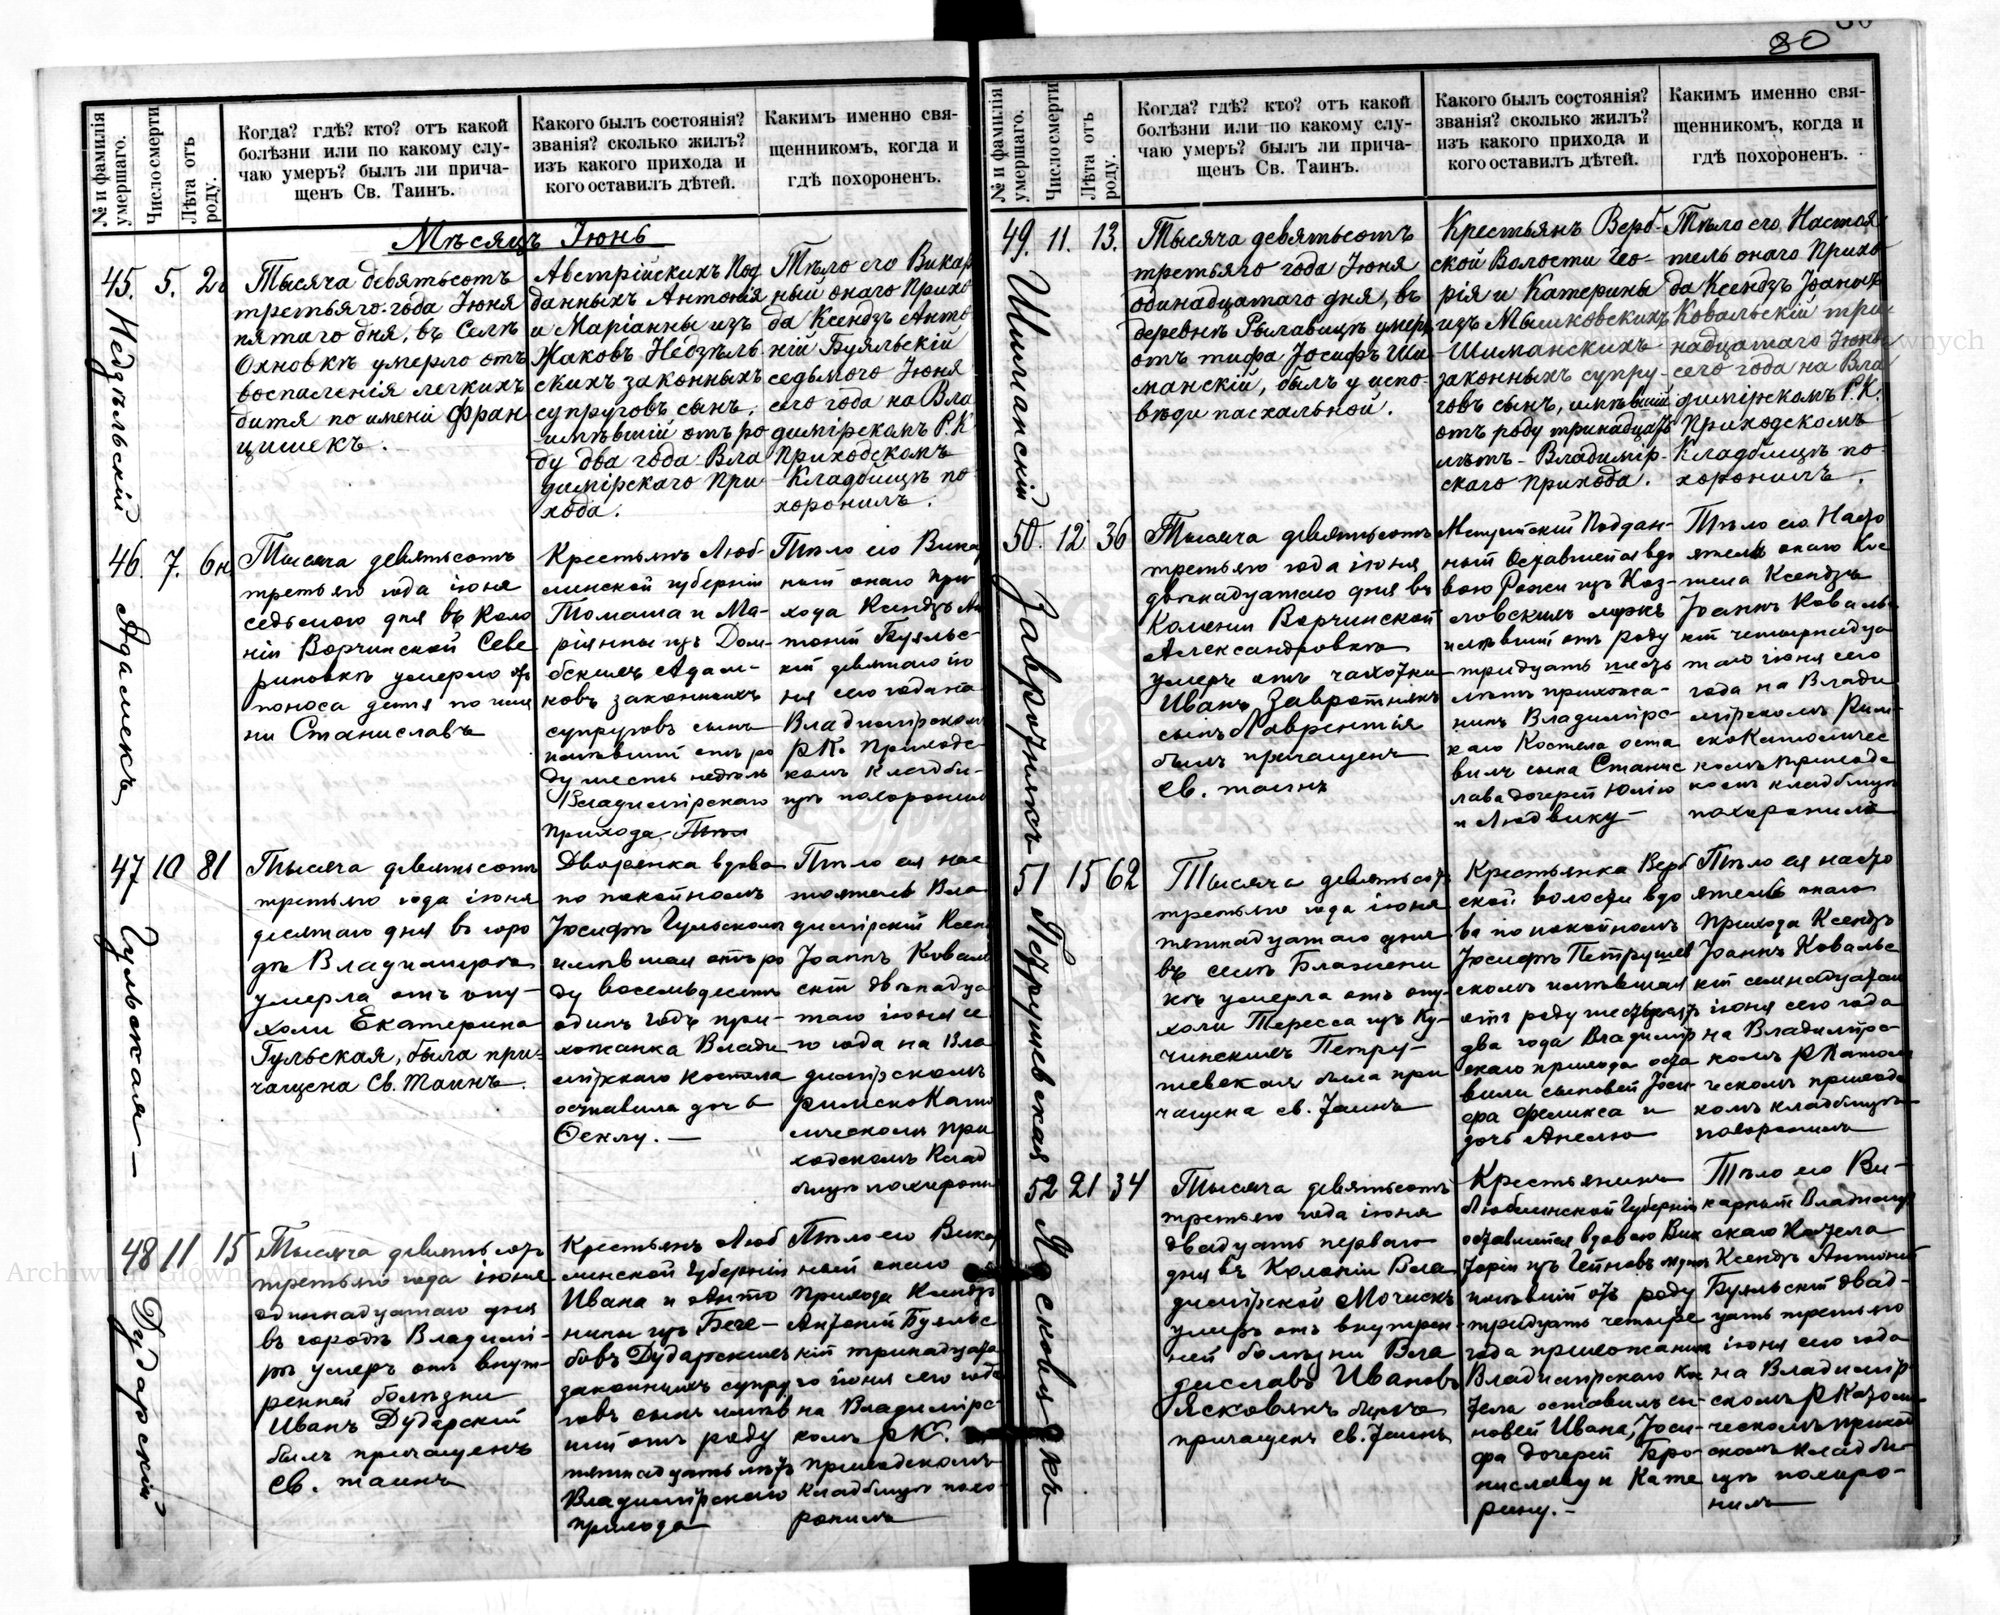 80
№ и фамилія умершаго.
Число смерти
Лѣта отъ роду.
Когда? гдѣ? кто? отъ какой
болѣзни или по какому слу-
чаю умеръ? былъ ли прича-
щенъ Св. Таинъ.
Какого былъ состоянія?
званія? сколько жилъ?
изъ какого прихода и
кого оставилъ дѣтей.
Какимъ именно свя-
щенникомъ, когда и
гдѣ похороненъ.
Мѣсяцъ Іюнь
45. 5.
Недзѣльскій
Тысяча девятьсотъ
третьяго года Іюня
пятаго дня, въ Селѣ
Охновкѣ умерло отъ
воспаленія легкихъ
дитя по имени Фран
цишекъ.
Австрійскихъ Под
данныхъ Антонія
и Маріанны изъ
Жаковъ Недзѣль
скихъ законныхъ
супруговъ сынъ,
имѣвшій отъ ро
ду два года Вла
димірскаго При
хода.
Тѣло его Викар
ный онаго Прихо
да Ксендзъ Анто
ній Буяльскій
седьмого Іюня
сего года на Вла
димірскомъ Р.К
Приходскомъ
Кладбищѣ по
хоронилъ.
46. 7. 6н
Адамекъ
Тысяча девятьсотъ
третьяго года іюня
седьмого дня въ Коло
ніи Ворчинской Севе
риновкѣ умерло отъ
поноса дитя по име
ни Станиславъ
Крестьянъ Люб-
линской губерніи
Томаша и Ма-
ріянны изъ Дом-
бскихъ Адам-
ковъ законныхъ
супруговъ сынъ
имѣвшій отъ ро
ду шесть недѣль
Владимірскаго
прихода
Тѣло его Вика
ный онаго При
хода Ксендзъ Ан
тоній Буяльс-
кій девятаго ію
ня сего года на
Владимірском
РК. Приходс-
комъ Кладби-
щѣ похоронилъ
47 10 81
Гульская
Тысяча девятьсотъ
третьяго года іюня
десятаго дня въ горо
дѣ Владимирѣ
умерла отъ опу-
холи Екатерина
Гульская, была при-
чащена Св. Таинъ.
Дворянка вдова
по покойномъ
Іосифѣ Гульскомъ
имѣвшая отъ ро
ду восемьдесятъ
одинъ годъ при-
хожанка Влади
мірскаго костела
оставила дочь
Ѳеклу.
Тѣло ея нас
тоятель Вла
димірскій Ксен
Іоаннъ Коваль
скій двѣнадца
таго іюня се
го года на Вла
димірскомъ
римскоКато
лическомъ при
ходскомъ Клад
бищѣ похорони
48 11 15
Дударскій
Тысяча девятьсотъ
третьяго года іюня
одиннадцатаго дня
въ городѣ Владимі-
рѣ умеръ отъ внут-
ренней болѣзни
Иванъ Дударскій
былъ причащенъ
Св. таинъ
Крестьянъ Люб
линской Губерніи
Ивана и Анто
нины изъ Беге-
бовъ Дударскихъ
законныхъ супру
говъ сынъ имѣв
шій отъ роду
пятнадцать лѣтъ
Владимірскаго
прихода
Тѣло его Викар
ный онаго
Прихода Ксендзъ
Антоній Буяльс
кій тринадцата
го іюня сего года
на Владимірс-
комъ РК.
приходскомъ
Кладбищѣ похо-
ронилъ
№ и фамилія умершаго.
Число смерти
Лѣта отъ роду.
Когда? гдѣ? кто? отъ какой
болѣзни или по какому слу-
чаю умеръ? былъ ли прича-
щенъ Св. Таинъ.
Какого былъ состоянія?
званія? сколько жилъ?
изъ какого прихода и
кого оставилъ дѣтей.
Какимъ именно свя-
щенникомъ, когда и
гдѣ похороненъ.
49. 11. 13.
Шиманскій
Тысяча девятьсотъ
третьяго года Іюня
одинадцатаго дня, въ
деревнѣ Рылавицѣ умеръ
отъ тифа Іосифъ Ши
манскій, былъ у испо-
вѣди пасхальной.
Крестьянъ Верб-
ской Волости Гео-
рія и Катерины
изъ Мышковскихъ
Шиманскихъ
законныхъ супру-
говъ сынъ, имѣвшій
отъ роду тринадцать
лѣтъ - Владимір-
скаго Прихода.
Тѣло его Настоя
тель онаго Прихо
да Ксендзъ Іоаннъ
Ковальскій три-
надцатаго Іюня
сего года на Вла
димірскомъ Р.К.
Приходскомъ
Кладбищѣ по-
хоронилъ.
50. 12 36
Завротнякъ
Тысяча девятьсотъ
третьяго года іюня
двѣнадцатаго дня въ
Колоніи Ворчинской
Александровкѣ
умеръ отъ чахотки
Иванъ Завротнякъ
сынъ Лаврентія
былъ причащенъ
Св. таинъ
Австрійскій Поддан-
ный Оставшейся вдо
вою Розки изъ Коз-
ловскихъ мужъ
имѣвшій отъ роду
тридцать шесть
лѣтъ прихожа-
нинъ Владимірс-
каго Костела оста
вилъ сына Станис
лава дочерей Юлію
и Людвику
Тѣло его Насто
ятель онаго Кос
тела Ксендзъ
Іоаннъ Коваль-
кій четырнадца
таго іюня сего
года на Влади
мірскомъ Рим-
скоКатоличес
комъ приходс
комъ кладбищѣ
похоронилъ
51 15 62
Петрушевская
Тысяча девятьсотъ
третьяго года іюня
пятнадцатаго дня
въ селѣ Блажени
кѣ умерла отъ опу-
холи Тересса изъ Ку-
чинскихъ Петру-
шевская была при
чащена св. Таинъ
Крестьянка Верб
ской волости вдо
ва по покойномъ
Іосифѣ Петрушев
скомъ имѣвшая
отъ роду шестьдесятъ
два года Владимір
скаго прихода оста
вила сыновей Іоси
фа Феликса и
дочь Анелю
Тѣло ея насто
ятель онаго
Прихода Ксендзъ
Іоаннъ Ковальс
кій семнадцатаго
іюня сего года
на Владимірс-
комъ РКатоли
ческомъ приходс
комъ кладбищѣ
похоронилъ
52 21 34
Ясковякъ
Тысяча девятьсотъ
третьяго года іюня
двадцать перваго
дня въ Колоніи Вла
димірской Мочискъ
умеръ отъ внутрен-
ней болѣзни Вла
диславъ Ивановъ
Ясковякъ былъ
причащенъ св. Таинъ
Крестьянинъ
Люблинской Губерніи
оставшейся вдовою Вик
торіи изъ Гейновъ мужъ
имѣвшій отъ роду
тридцать четыре
года прихожанинъ
Владимірскаго Кос
тела оставилъ сы-
новей Ивана, Іоси-
фа дочерей Бро-
ниславу и Кате
рину.
Тѣло его Ви-
карный Владимір
скаго Костела
Ксендзъ Антоній
Буяльскій двад-
цать третьяго
іюня сего года
на Владимір
скомъ РКатоли-
ческомъ приход
скомъ кладби-
щѣ похоро-
нилъ
Archiwum Główne Akt Dawnych